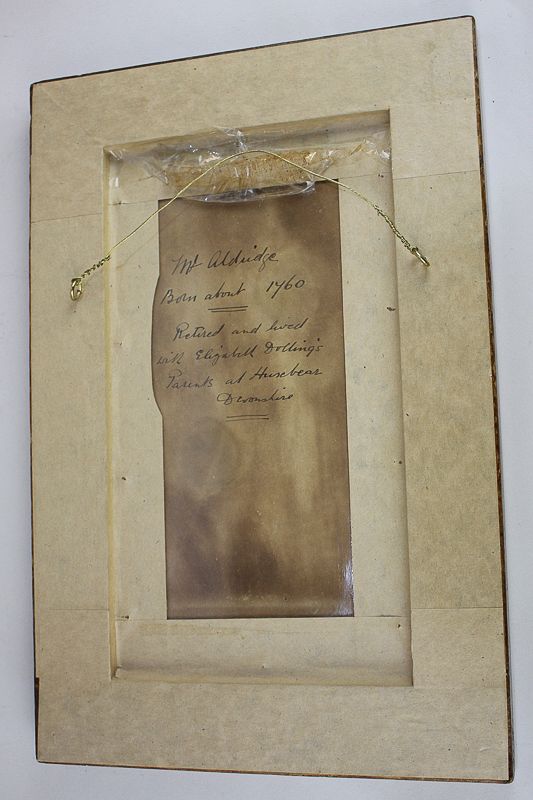 Mr Aldridge
Born about 1760
Retired and lived
with Elizabeth Dolling's
Parents at Husebear
Devonshire